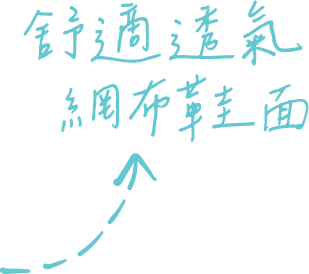 舒適透氣
網布鞋面